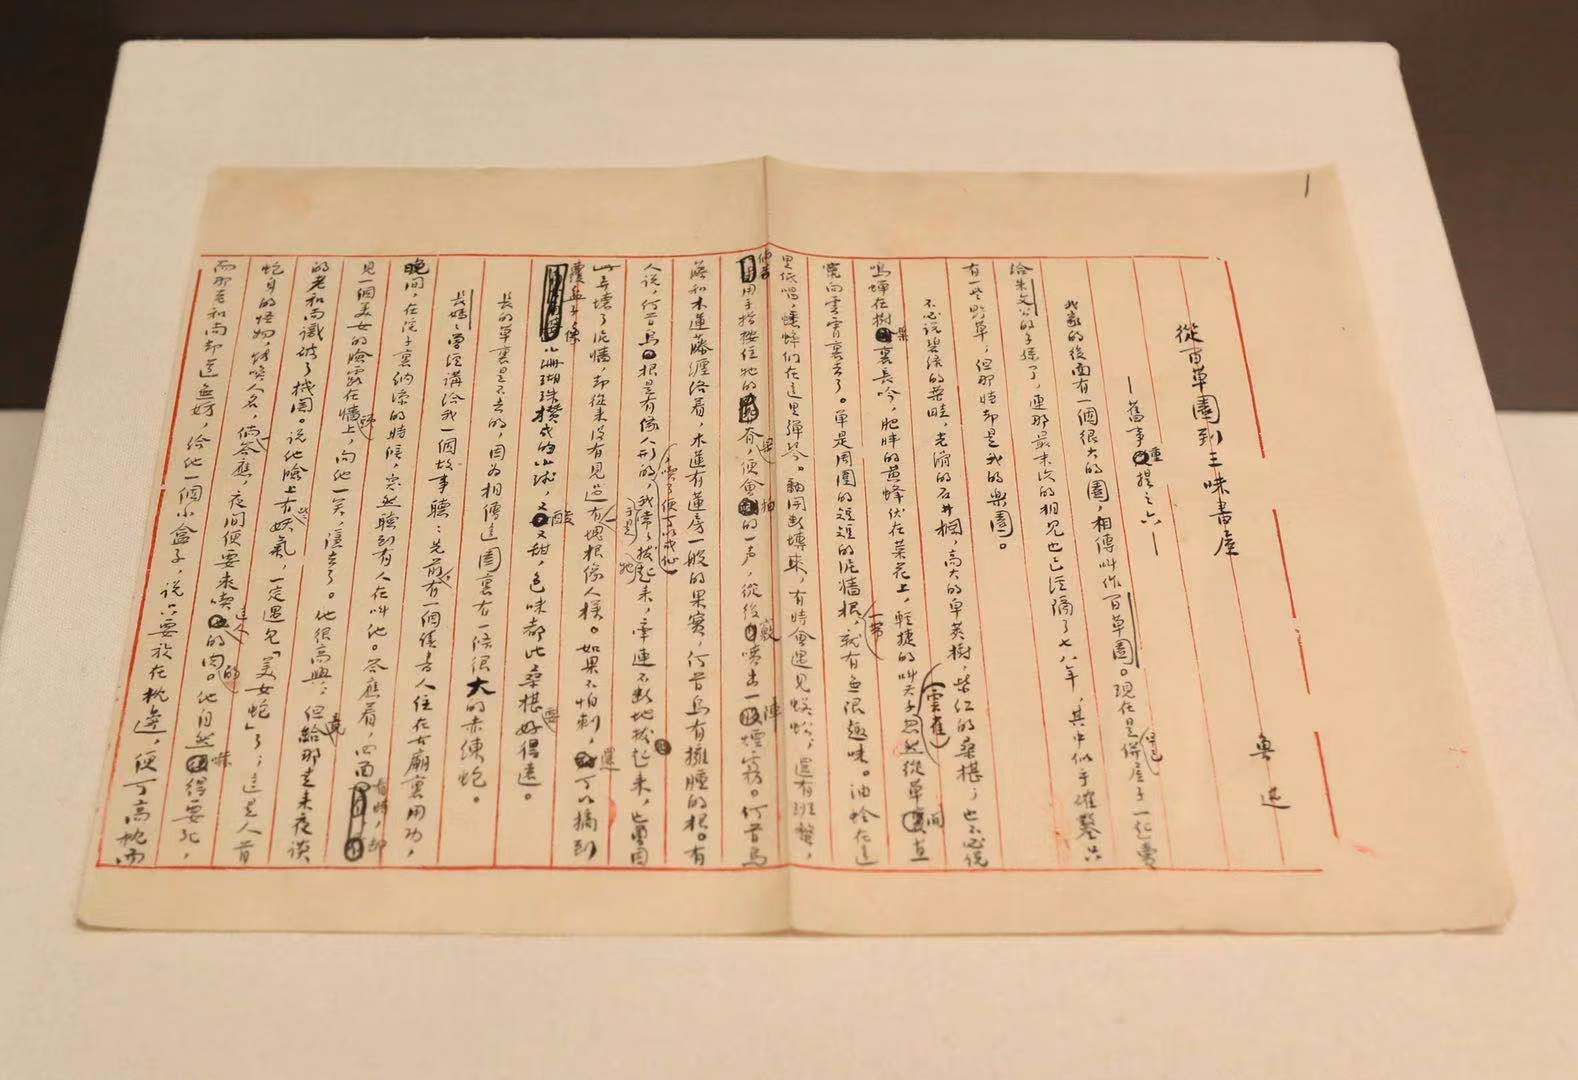 1
從百草園到三味書屋
——舊事重提之六——
魯迅
我家的後面有一個很大的園，相傳叫作百草園。現在是早已併屋子一起賣
給朱文公的子孫了，連那最末次的相見也已經隔了七八年，其中似乎確鑿只
有一些野草；但那時却是我的樂園。
不必說碧綠的菜畦，光滑的石井欄，高大的皁莢樹，紫紅的桑椹；也不必說
鳴蟬在樹葉裏長吟，肥胖的黃蜂伏在菜花上，輕捷的叫天子（雲雀）忽然從草間直
竄向雲霄裏去了。單是周圍的短短的泥牆根一帶，就有無限趣味。油蛉在這
里低唱，蟋蟀們在這里彈琴。翻開斷磚來，有時會遇見蜈蚣；還有班蝥，
倘若用手指按住牠的脊梁，便會拍的一声，從後竅噴出一陣煙霧。何首烏
藤和木蓮藤纏洛着，木蓮有蓮房一般的果實，何首烏有擁腫的根。有
人說，何首烏根是有像人形的，喫了便可以成仙，我于是常常拔牠起來，牽連不斷地拔起來，也曾因
此弄壞了泥牆，却從來沒有見過有一塊根像人樣。如果不怕刺，還可以摘到
覆盆子，像小珊瑚珠攢成的小球，又酸又甜，色味都比桑椹要好得遠。
長的草裏是不去的，因为相傳這園裏有一條很大的赤練蛇。
長媽媽曾經講給我一個故事聽：先前，有一個讀書人住在古廟裏用功，
晚間，在院子裏納涼的時候，突然聽到有人在叫他。答應着，四面看時，却
見一個美女的臉露在牆頭上，向他一笑，隱去了。他很高興；但竟給那走來夜談
的老和尚識破了機關。說他臉上有些妖氣，一定遇見「美女蛇」了；這是人首
蛇身的怪物，能喚人名，倘一答應，夜間便要來喫這人的肉的。他自然嚇得要死，
而那老和尚却道無妨，給他一個小盒子，說只要放在枕邊，便可高枕而